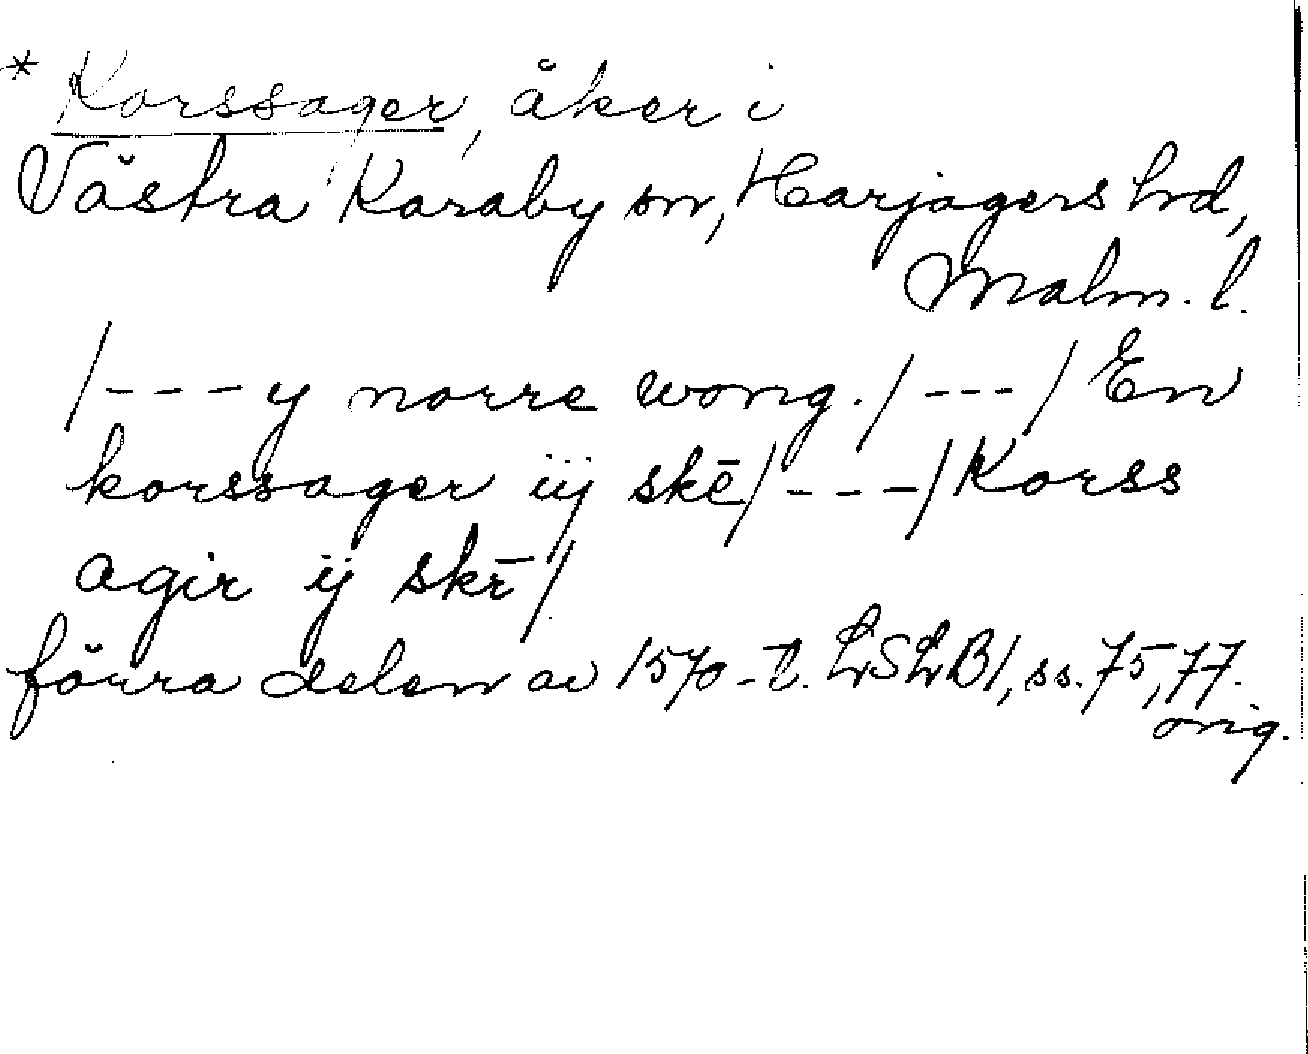 * Korssager, åker i
Västra Karaby sn, Harjagers hd,
Malm. l.
/---y norre wong./---/ En
korssager iij skē/---/Korss
agir ij skr̄/
förra delen av 1570-t. LSLB1, ss. 75, 77.
orig.